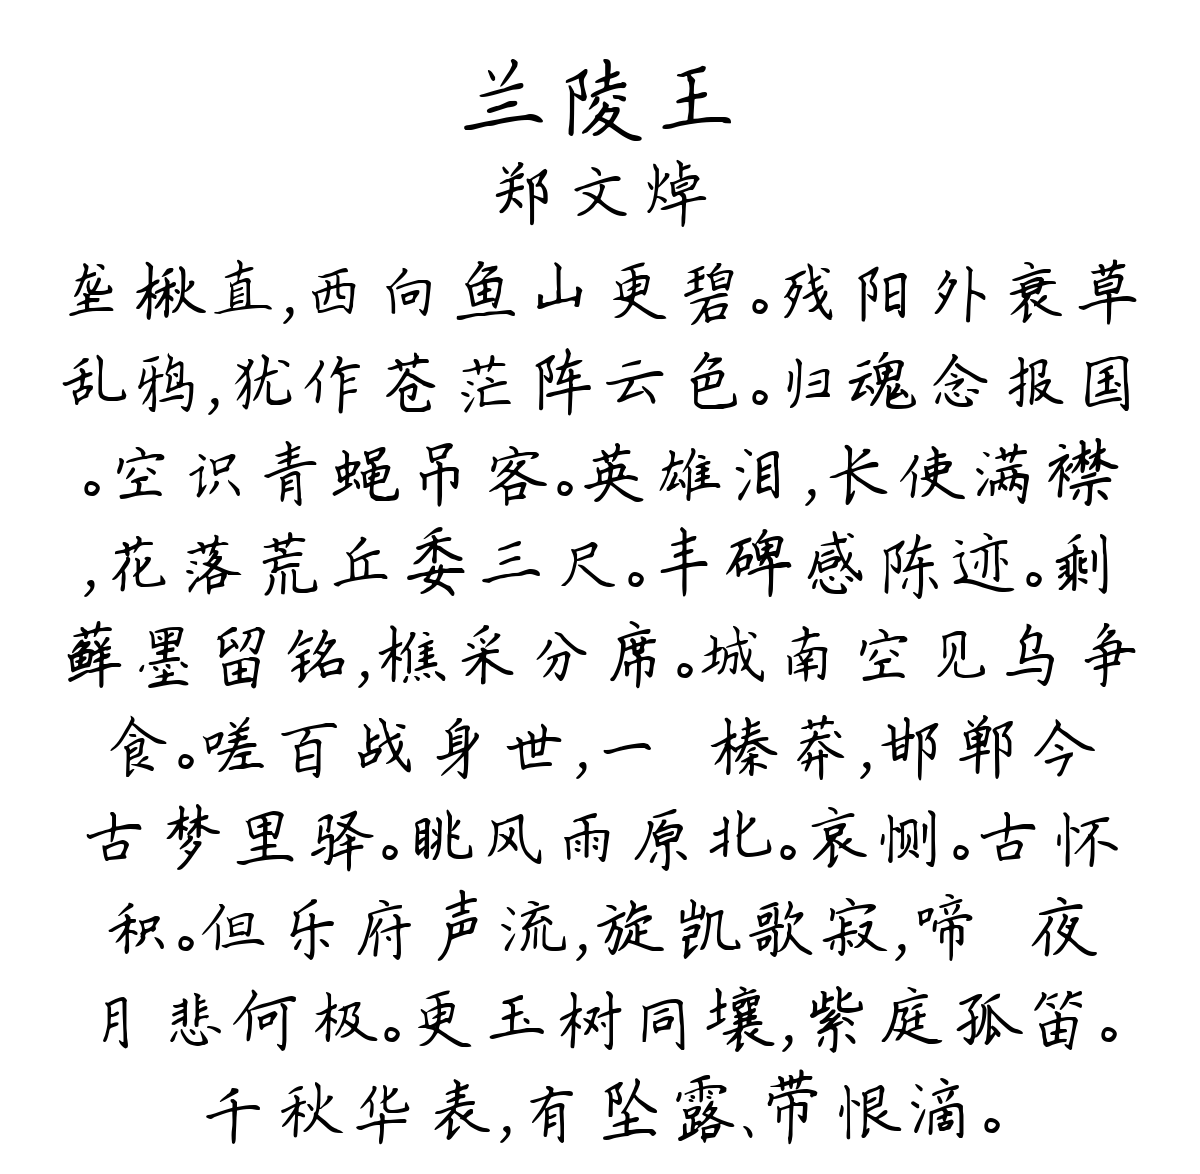 兰陵王
郑文焯
垄楸直,西向鱼山更碧。残阳外衰草
乱鸦,犹作苍茫阵云色。归魂念报国
。空识青蝇吊客。英雄泪,长使满襟
,花落荒丘委三尺。丰碑感陈迹。剩
藓墨留铭,樵采分席。城南空见乌争
食。嗟百战身世,一 榛莽,邯郸今
古梦里驿。眺风雨原北。哀恻。古怀
积。但乐府声流,旋凯歌寂,啼 夜
月悲何极。更玉树同壤,紫庭孤笛。
千秋华表,有坠露、带恨滴。